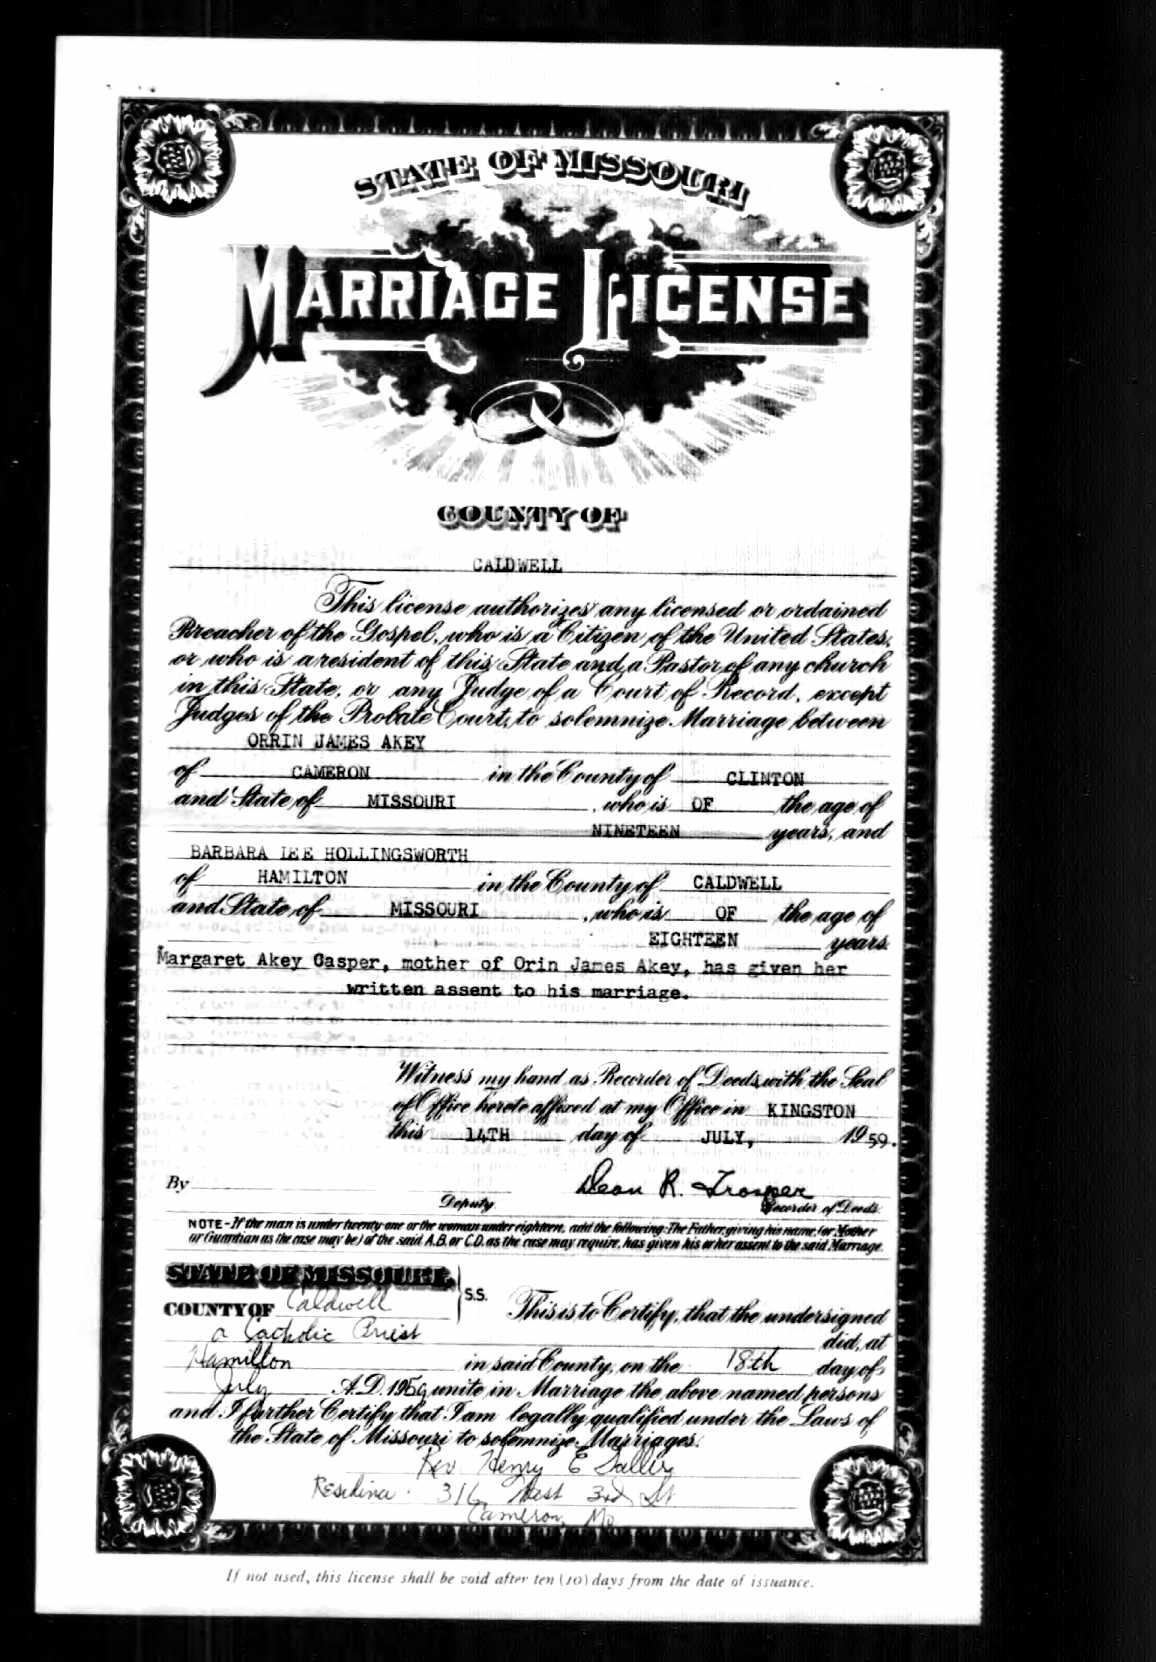 STATE OF MISSOURI
MARRIAGE LICENSE
COUNTY OF
CALDWELL
This license authorizes any licensed or ordained
Preacher of the Gospel, who is a Citizen of the United States,
or who is a resident of this State and a Pastor of any church
in this State, or any Judge of a Court of Record, except
Judges of the Probate Court, to solemnize Marriage between
ORRIN JAMES AKEY
of CAMERON in the County of CLINTON
and State of MISSOURI, who is OF the age of
NINETEEN years, and
BARBARA LEE HOLLINGSWORTH
of HAMILTON in the County of CALDWELL
and State of MISSOURI, who is OF the age of
EIGHTEEN years.
Margaret Akey Casper, mother of Orin James Akey, has given her
written assent to his marriage.
Witness my hand as Recorder of Deeds, with the Seal
of Office hereto affixed at my Office in KINGSTON
this 14TH day of JULY, 1959.
By Dean R. Trosper
Deputy Recorder of Deeds.
NOTE - If the man is under twenty-one or the woman under eighteen, add the following: The Father, giving his name, (or Mother
or Guardian as the case may be) of the said A.B. or C.D. as the case may require, has given his or her assent to the said Marriage.
STATE OF MISSOURI,
COUNTY OF Caldwell S.S. This is to Certify, that the undersigned
a Catholic Priest did, at
Hamilton in said County, on the 18th day of
July A.D. 1959 unite in Marriage the above named persons
and I further Certify that I am legally qualified under the Laws of
the State of Missouri to solemnize Marriages.
Rev Henry E
Residing. 316 West 3rd St
Cameron, Mo
If not used, this license shall be void after ten (10) days from the date of issuance.